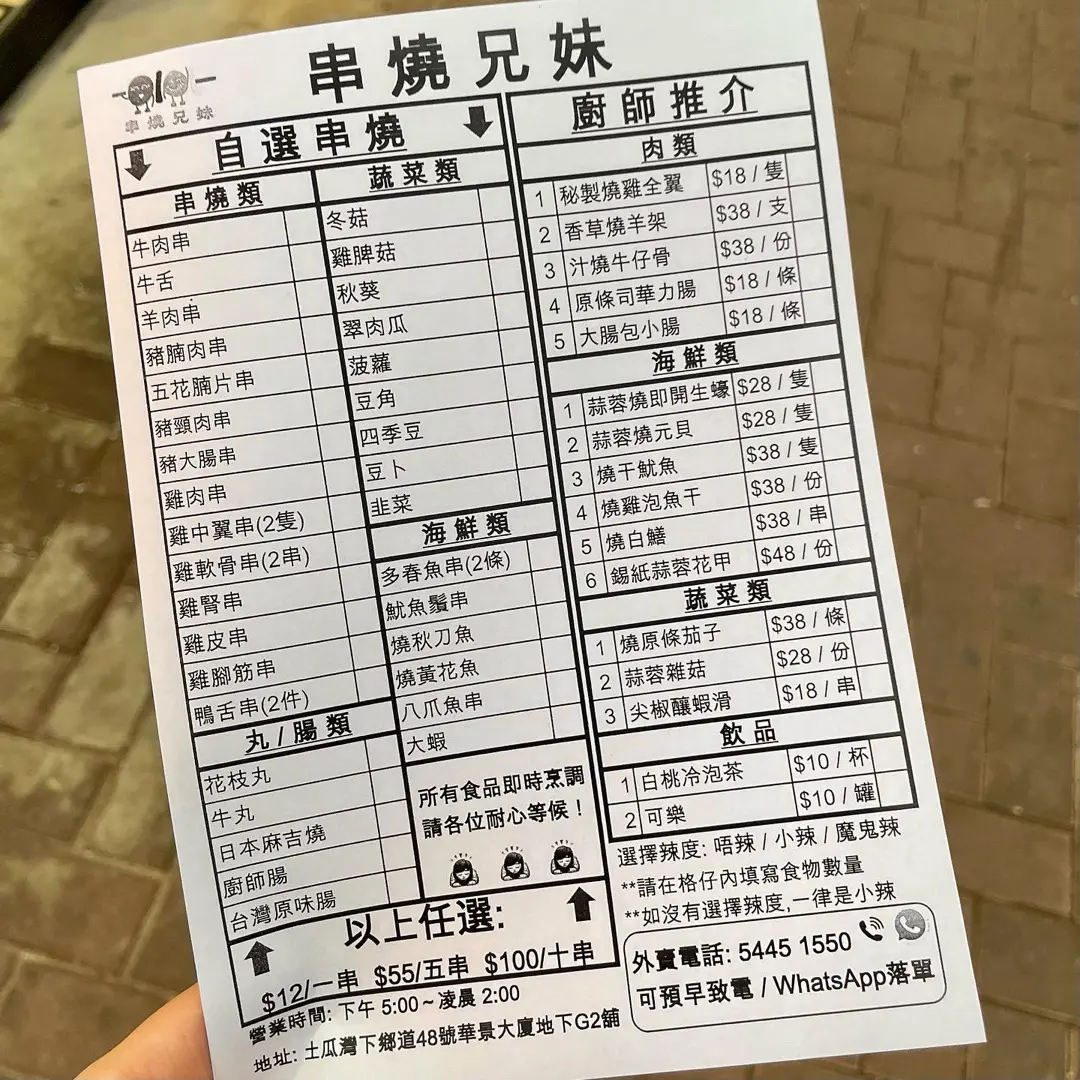 串燒兄妹
串燒兄妹
自選串燒
串燒類
牛肉串
牛舌
羊肉串
豬腩肉串
五花腩片串
豬頸肉串
豬大腸串
雞肉串
雞中翼串(2隻)
雞軟骨串(2串)
雞腎串
雞皮串
雞腳筋串
鴨舌串(2件)
丸/腸類
花枝丸
牛丸
日本麻吉燒
廚師腸
台灣原味腸
蔬菜類
冬菇
雞脾菇
秋葵
翠肉瓜
菠蘿
豆角
四季豆
豆卜
韭菜
海鮮類
多春魚串(2條)
魷魚鬚串
燒秋刀魚
燒黃花魚
八爪魚串
大蝦
所有食品即時烹調
請各位耐心等候！
以上任選:
$12/一串 $55/五串 $100/十串
營業時間: 下午 5:00～凌晨 2:00
地址: 土瓜灣下鄉道48號華景大廈地下G2舖
廚師推介
肉類
1 秘製燒雞全翼 $18 / 隻
2 香草燒羊架 $38 / 支
3 汁燒牛仔骨 $38 / 份
4 原條司華力腸 $18 / 條
5 大腸包小腸 $18 / 條
海鮮類
1 蒜蓉燒即開生蠔 $28 / 隻
2 蒜蓉燒元貝 $28 / 隻
3 燒干魷魚 $38 / 隻
4 燒雞泡魚干 $38 / 份
5 燒白鱔 $38 / 串
6 錫紙蒜蓉花甲 $48 / 份
蔬菜類
1 燒原條茄子 $38 / 條
2 蒜蓉雜菇 $28 / 份
3 尖椒釀蝦滑 $18 / 串
飲品
1 白桃冷泡茶 $10 / 杯
2 可樂 $10 / 罐
選擇辣度: 唔辣 / 小辣 / 魔鬼辣
**請在格仔內填寫食物數量
**如沒有選擇辣度,一律是小辣
外賣電話: 5445 1550
可預早致電 / WhatsApp落單